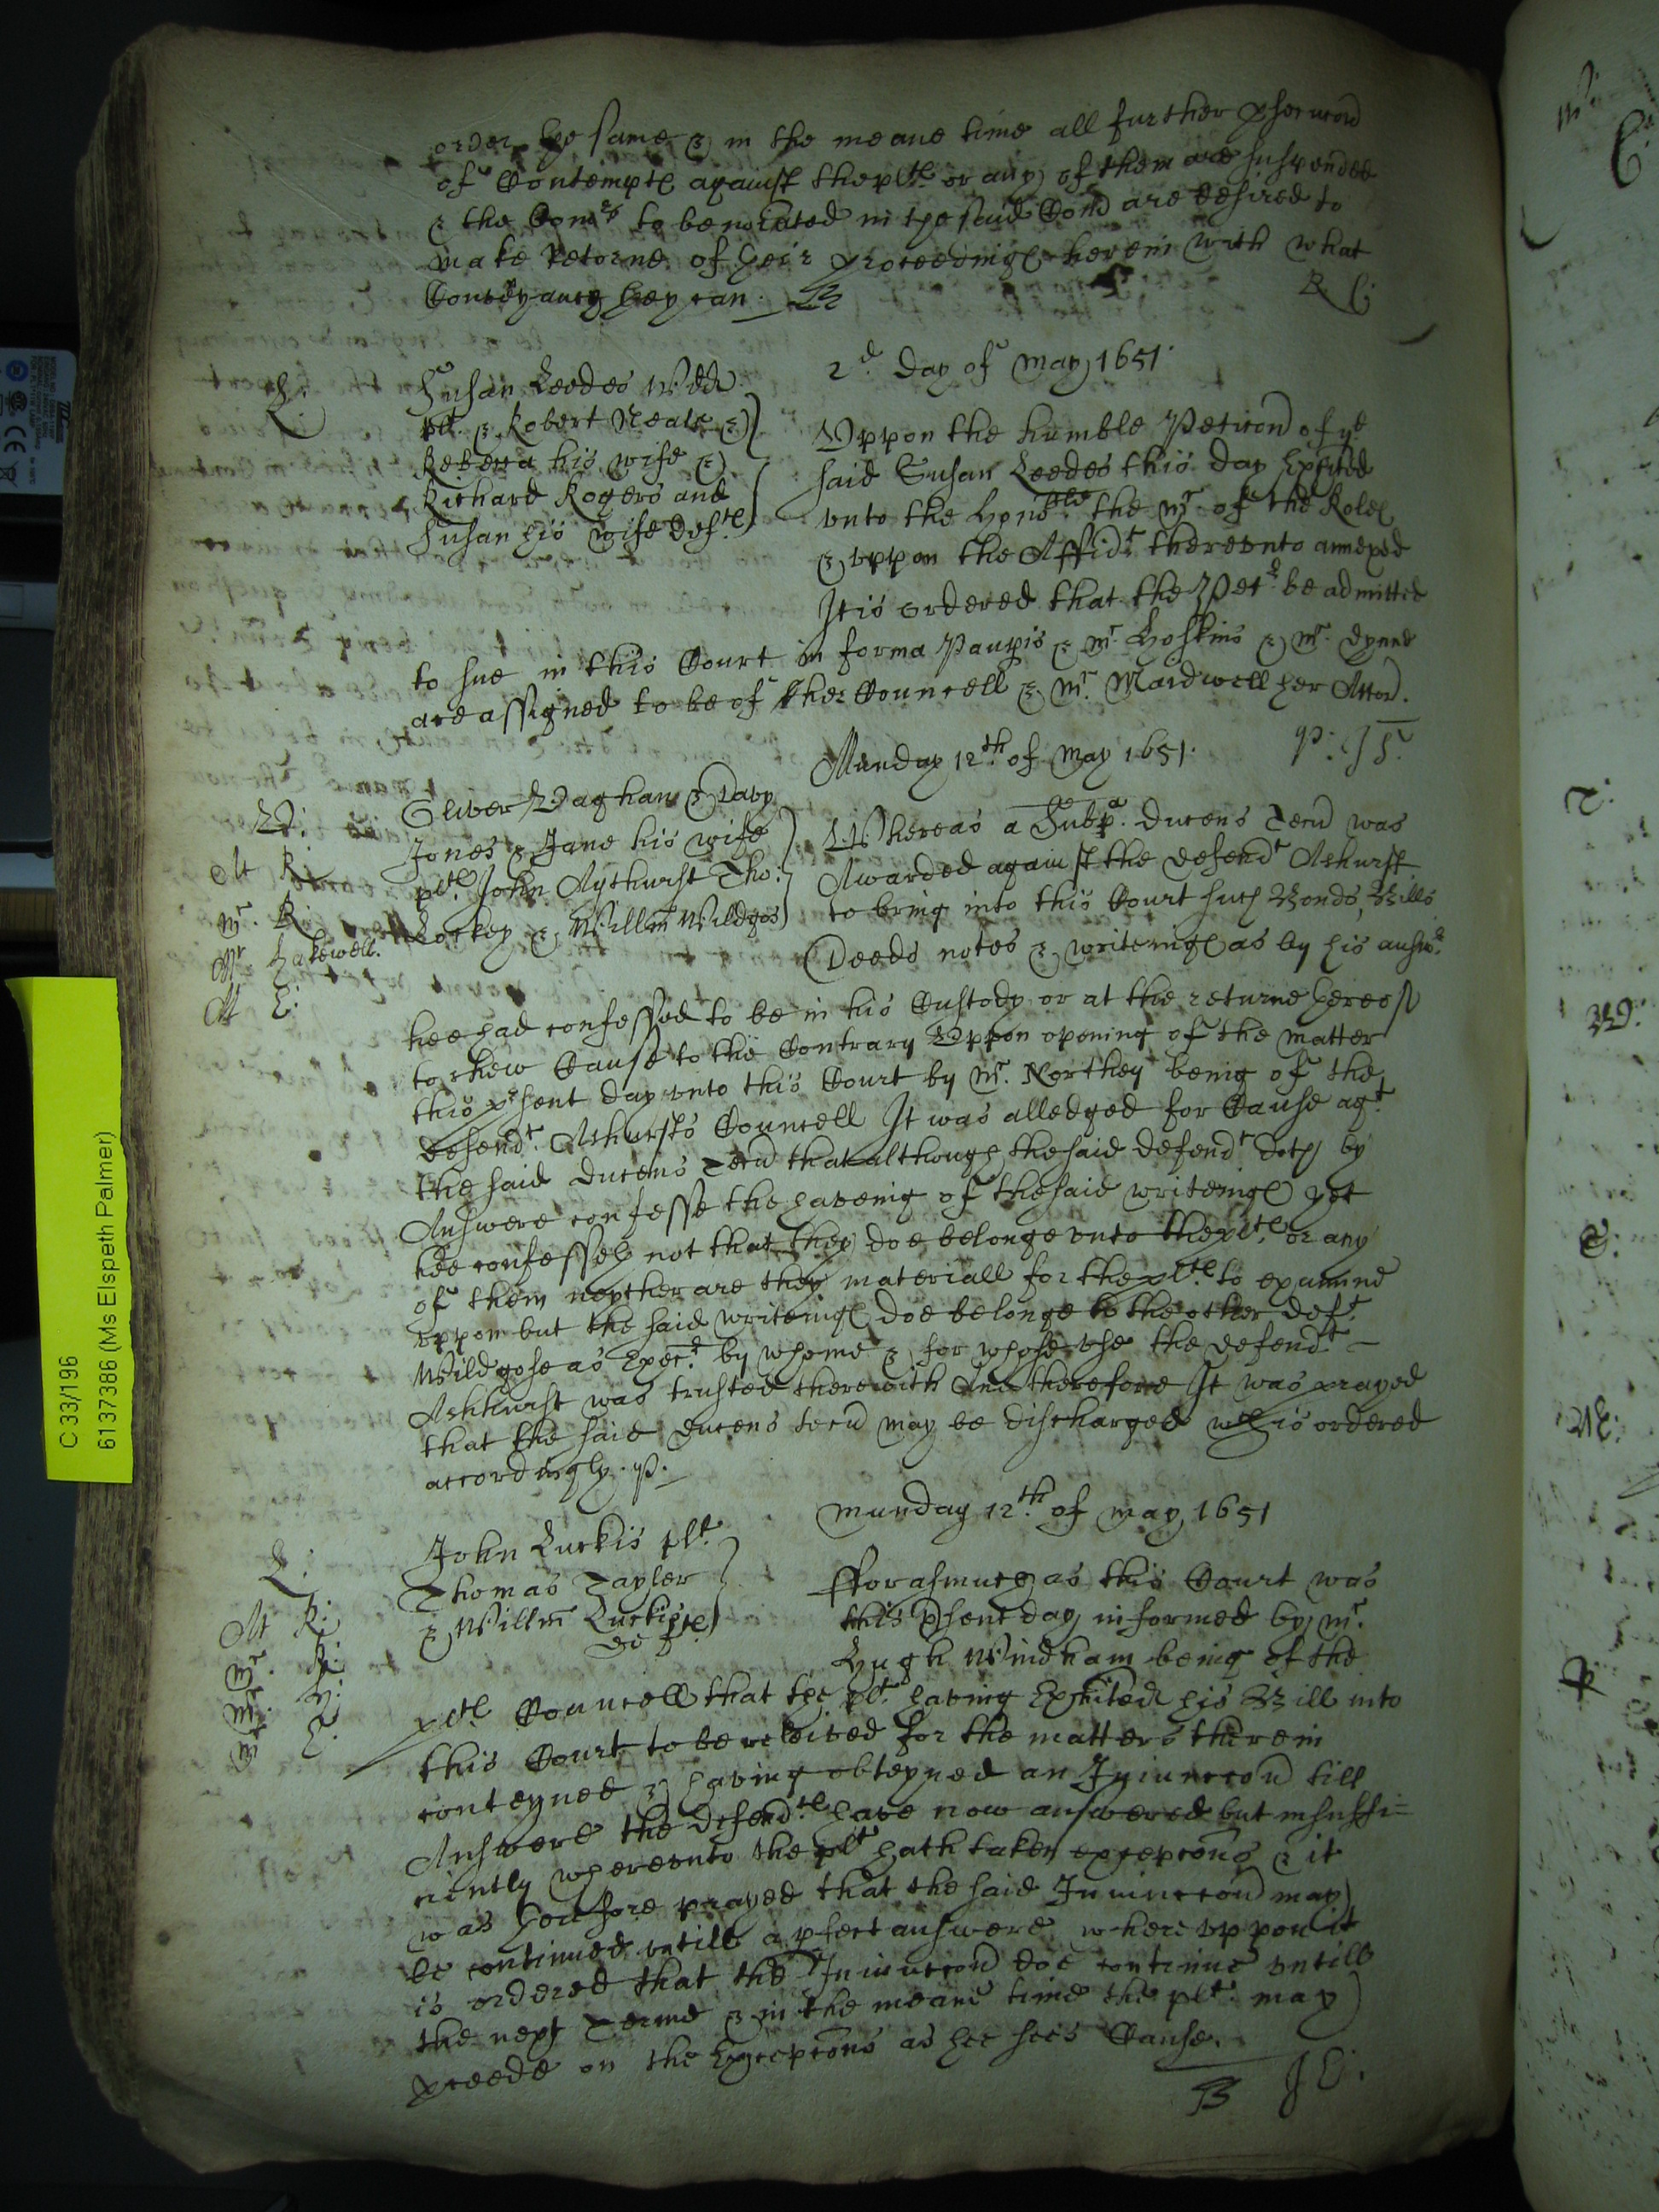 order the same & in the meane time all further
of Contempte against the plts. or any of them are suspended
& the Comrs to be in the said Comn are desired to
make Retorne of their proceedinges herein with what
they can.
R C:
2d. day of May 1651.
L:
Susan Leedes Widd.
plt. & Robert Neale &
Rebecca his wife &
Richard Rogers and
Susan his wife defts.
Vppon the humble Peticon of ye
said Susan Leedes this day Exhited
vnto the Honoble the Mr of the Rolles
& vppon the Affidt. therevnto annexed
It is ordered that the Petr be admitted
to sue in this Court in forma Paupis & Mr. Hoskins & Mr.
are assigned to be of her Councell & Mr. Mardwell her Attor.
Munday 12th. of May 1651.
V:
Oliver Vaghan & Davy
Jones & Jane his wife
plts. John Ayshurst Tho:
Lockey & Willm Wildgos
At R:
Mr. R:
Mr Hakewell.
At C:
Whereas a Subpa. Ducens Tecu was
Awarded against the defendt Ashurst
to bring into this Court such Bonds, Bills
Deeds notes & writeinges as by his answr.
hee had confessed to be in his Custody or at the returne hereof
to shew Cause to the Contrary Vppon opening of the matter
this prsent day vnto this Court by Mr. Northey being of the
defendt. Ashursts Councell It was alledged for Cause agt.
the said Ducens Tecu that although the said defendt doth by
Answere confesse the haveinig of the said writeinges yet
hee confesses not that they doe belonge vnto the plts. or any
of them neyther are they materiall for the plts. to examine
vppon but the said writeinges doe belonge to the other deft.
Wildgose as Exec. by whome & for whose vse the defendt.
Ashhurst was trusted therewith And therefore It was prayed
that the said Ducens tecu may be discharged wch is ordered
accordingly. P.
Munday 12th. of May 1651
L:
John Luckis plt.
Thomas Tayler
& Willm Luckis
defts.
At R:
Mr. R:
Mr. H:
Mr C:
fforasmuch as this Court was
this psent day informed by Mr.
Hugh Windham being of the
plts Councell that the plt. having Exhited his Bill into
this Court to be releived for the matters therein
conteyned & having obteyned an Iniunccon till
Answere the defendts have now answered but insuffi=
ciently wherevnto the plt hath taken excepcons & it
was therefore prayed that the said Iniunccon may
be continued vntill a pfect answere wherevppon it
is ordered that the Iniunccon doe continue vntill
the next Terme & in the meane time the plt. may
pceede on the Excepcons as hee sees Cause.
C 33/196
6137386 (Ms Elspeth Palmer)